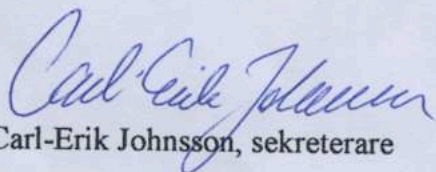 Carl-Erik Johnsson
Carl-Erik Johnsson, sekreterare